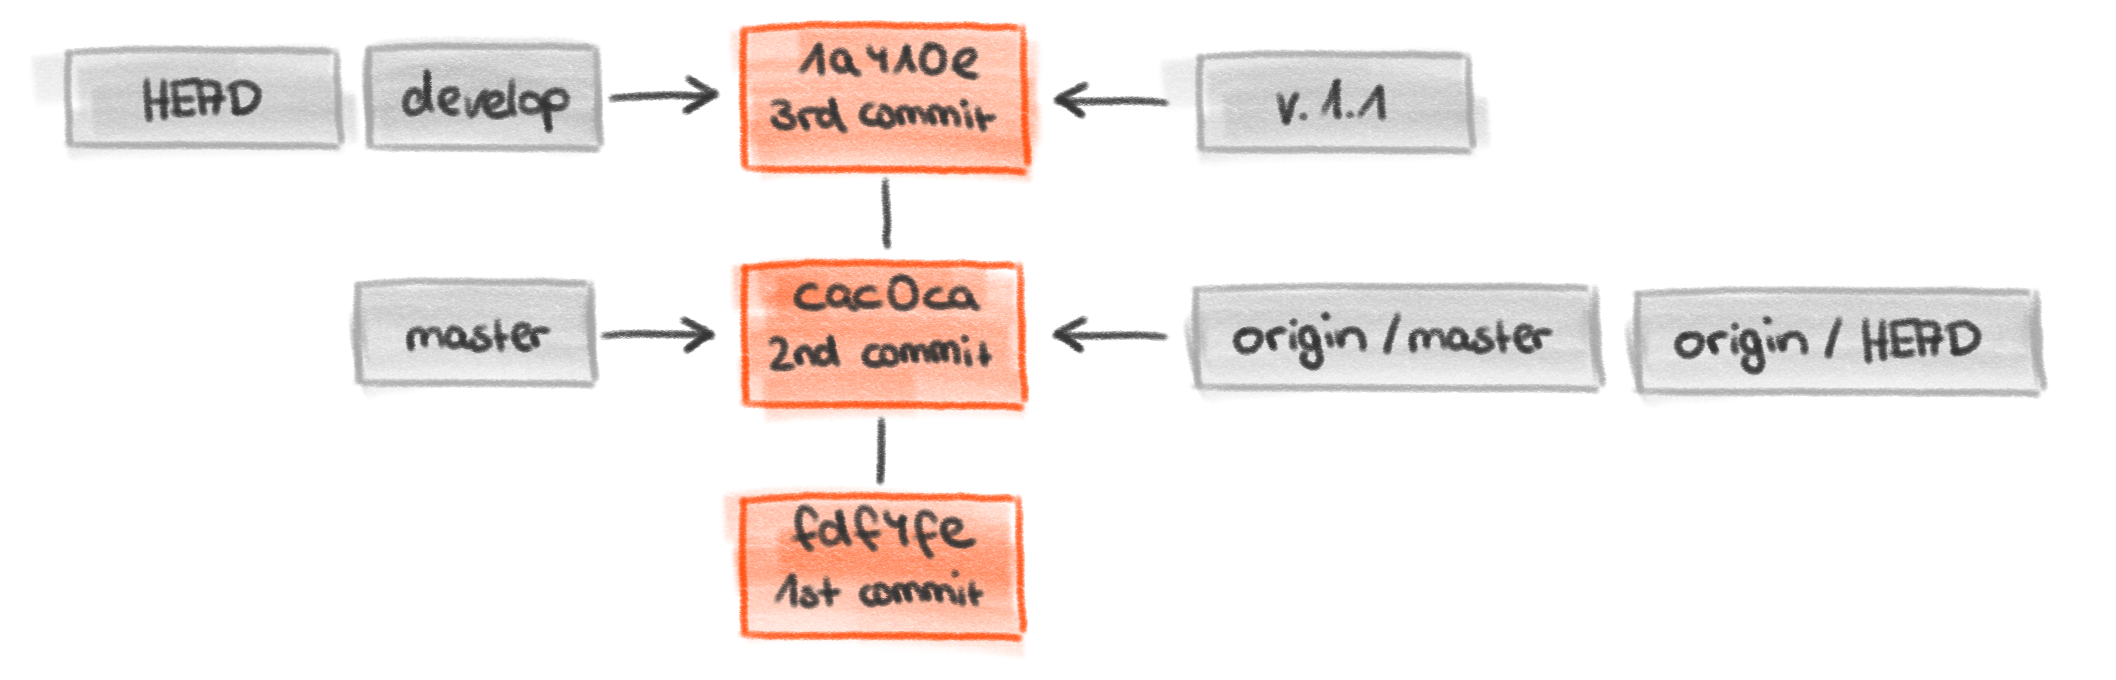 HEAD
develop
1a410e
3rd commit
v.1.1
master
cac0ca
2nd commit
origin/master
origin / HEAD
fdf4fe
1st commit